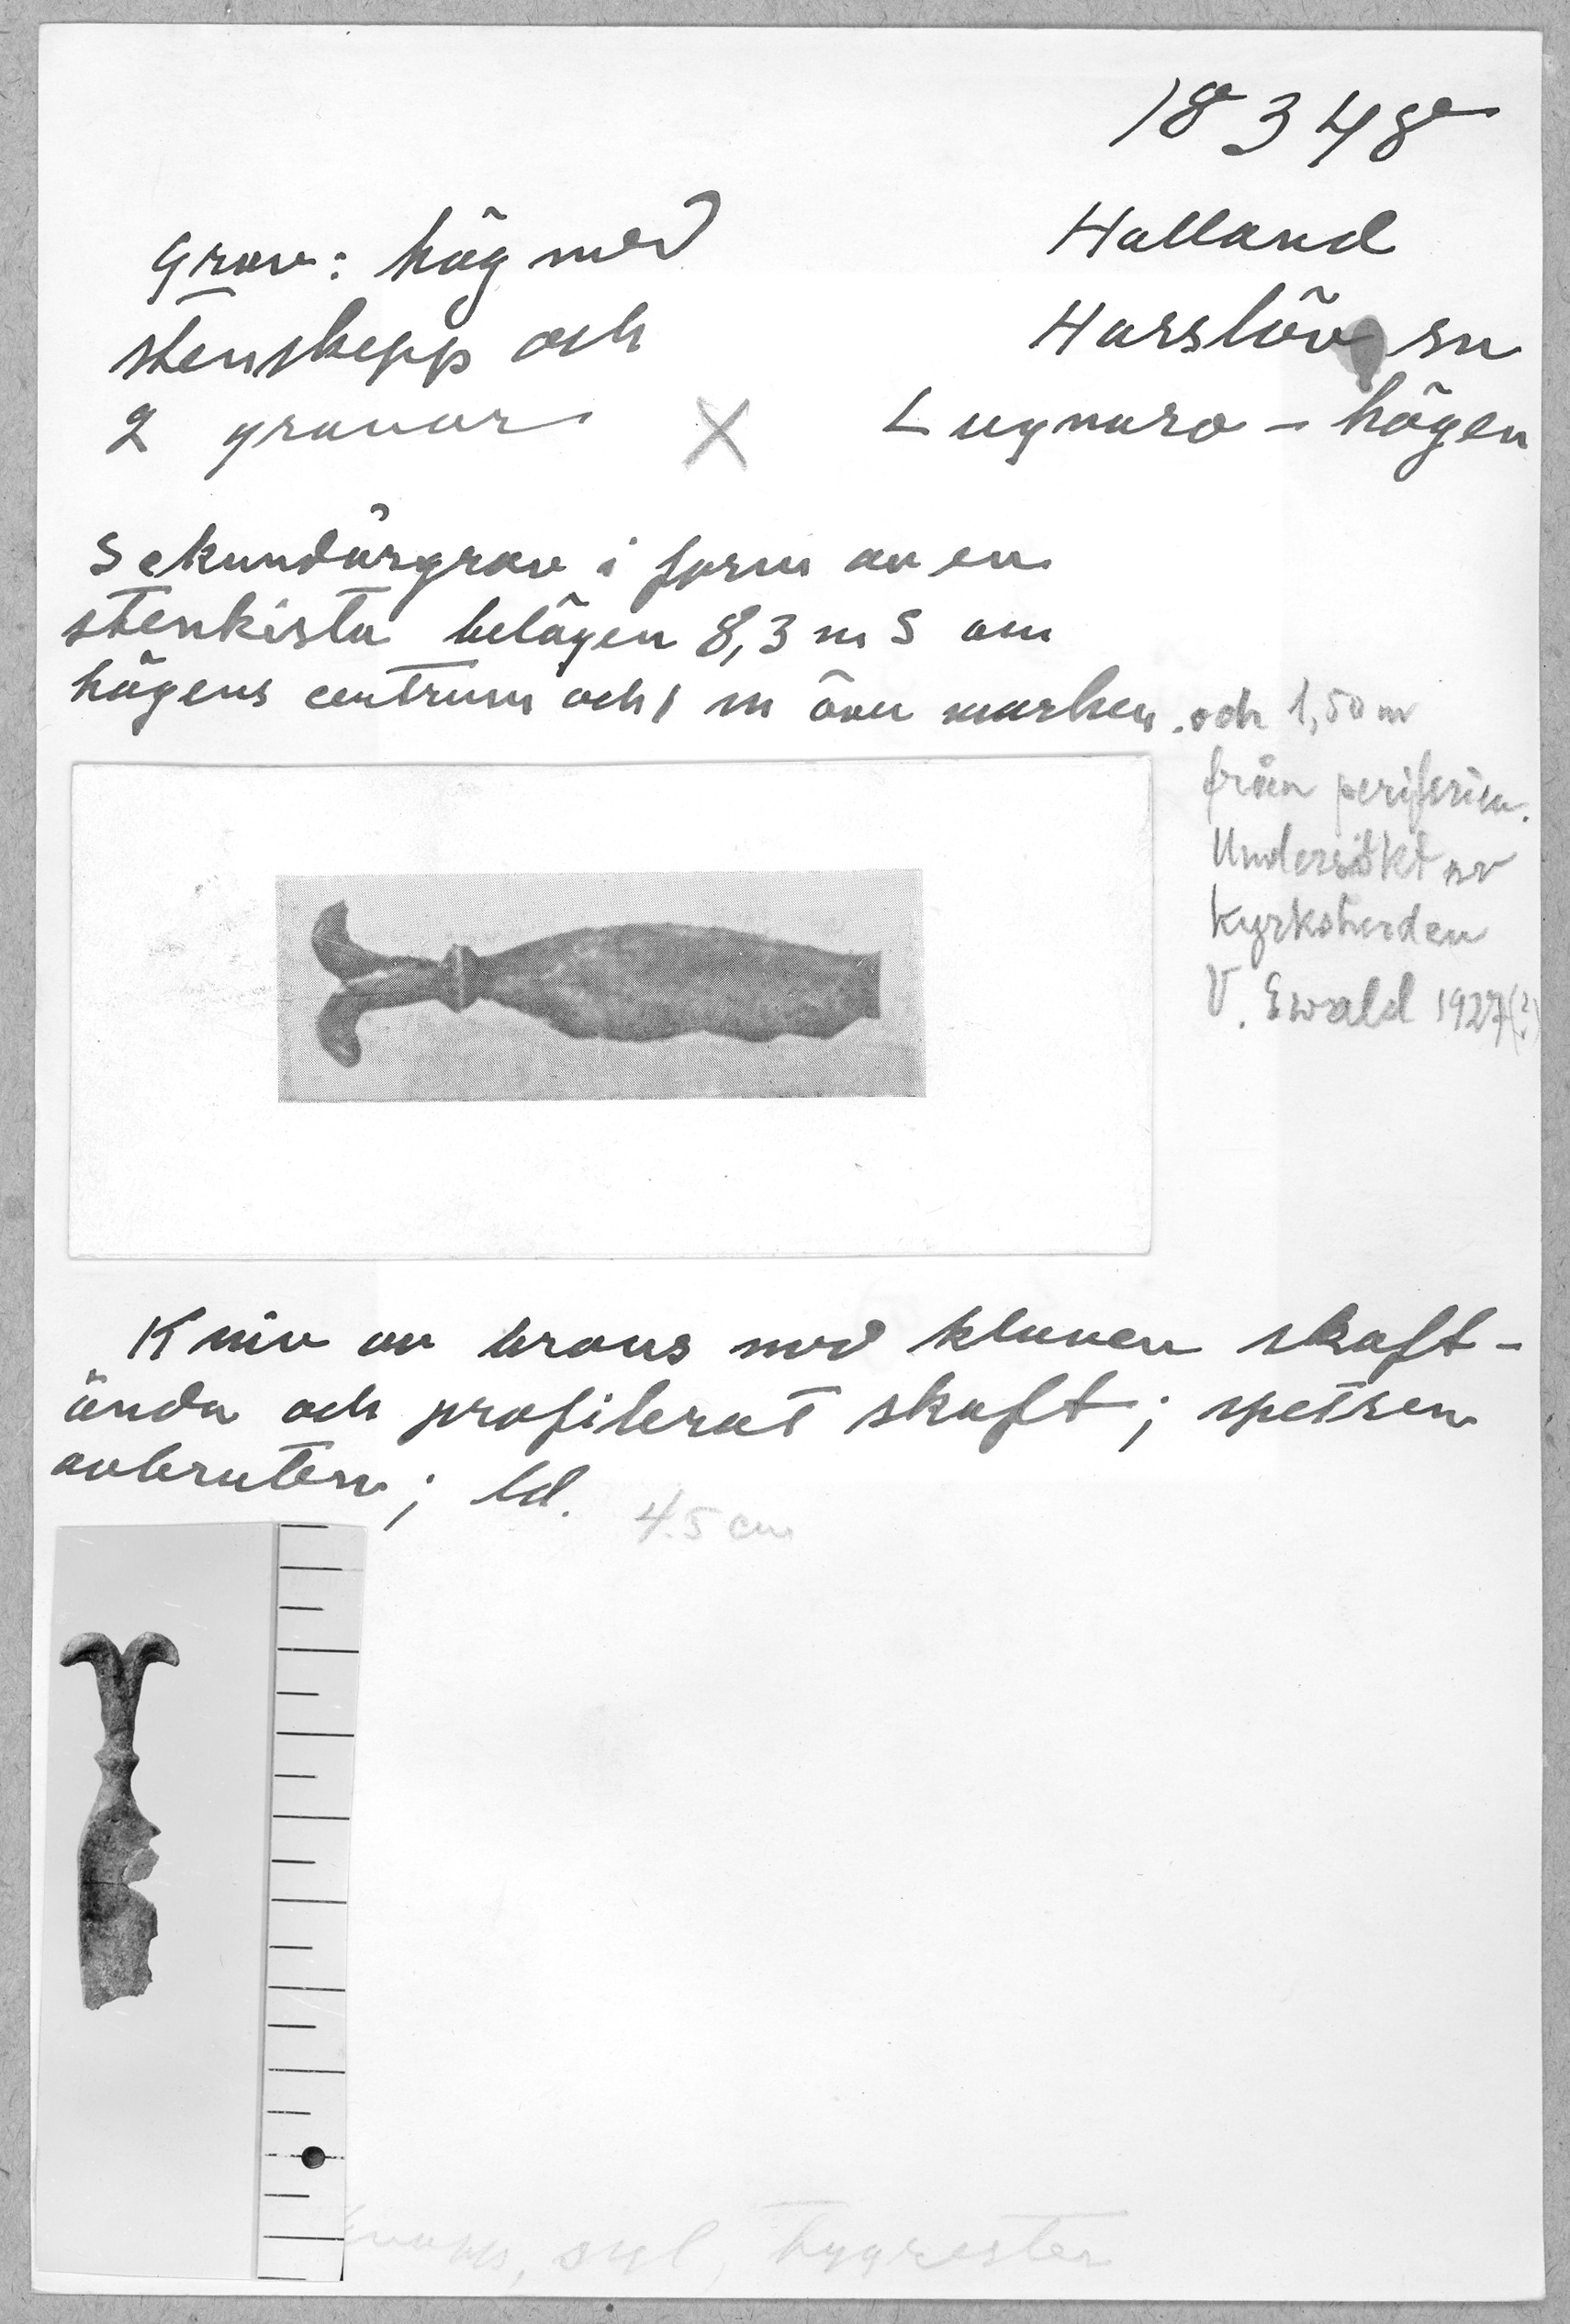 18348
Halland
Harslöv sn
Lugnaro - högen
Grav: hög med
stenskepp och
2 gravar X
Sekundärgrav i form av en
stenkista belägen 8,3 m S om
högens centrum och 1 m över marken. och 1,50 m
från periferien.
Undersökt av
Kyrkoherden
V. Ewald 1927(?)
Kniv av brons med kluven skaft-
ända och profilerat skaft; spetsen
avbruten; ld. 4.5 cm
syl, tygrester